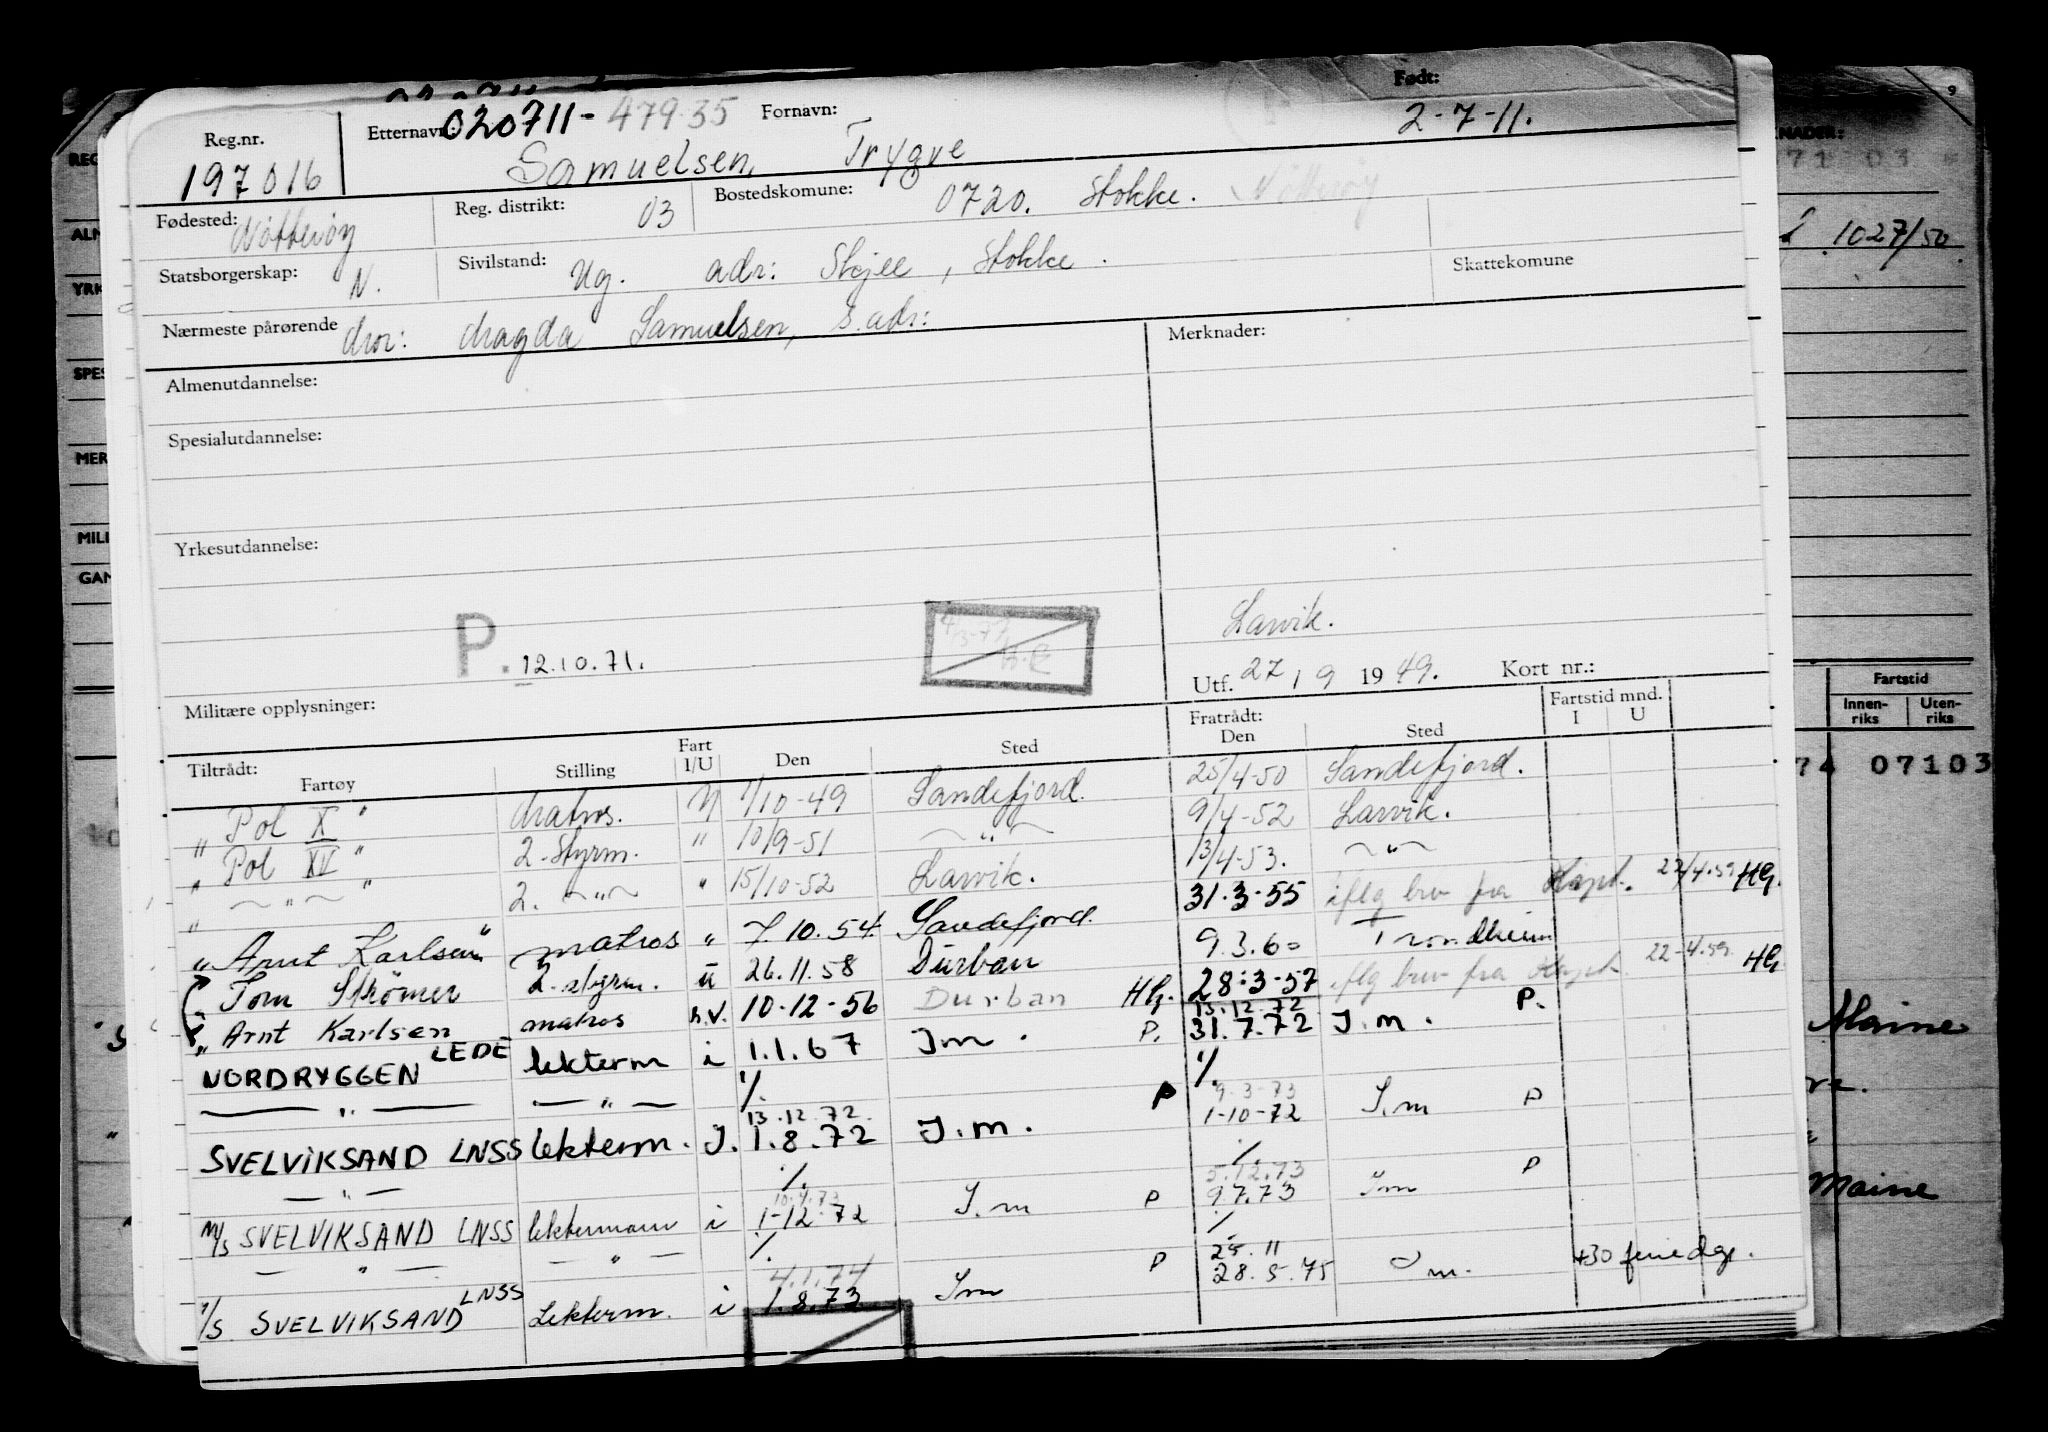 Reg.nr. Etternavn: 020711-479.35 Fornavn: Født:
197016 Samuelsen, Trygve 2-7-11.
Fødested: Nøtterøy Reg. distrikt: 03 Bostedskomune: 0720. Stokke. Nøtterøy
Statsborgerskap: N. Sivilstand: Ug. adr: Skjee, Stokke. Skattekomune
Nærmeste pårørende mor: Magda Samuelsen, s.adr: Merknader:
Almenutdannelse:
Spesialutdannelse:
Yrkesutdannelse:
Larvik.
P. 12.10.71.
Utf. 27/9 1949. Kort nr.:
Militære opplysninger:
Tiltrådt: Fratrådt: Fartstid mnd.
Fartøy Stilling Fart I/U Den Sted Den Sted I U
"Pol X" Matros. U 1/10-49 Sandefjord. 25/4-50 Sandefjord.
"Pol XV" 2. Styrm. " 10/9-51 — " — 9/4-52 Larvik.
" — " — " 2. — " — " 15/10-52 Larvik. 13/4-53. — " —
"Arnt Karlsen" matros " 7.10.54. Sandefjord. 31.3-55 iflg brev fra Kapt. 22/4.59 HG.
Tom Strömer 2. styrm. u 26.11.58 Durban 9.3.60 Trondheim
"Arnt Karlsen matros h.v. 10-12-56 Durban HG. 28.3-57 iflg brev fra Kapt. 22-4.59. HG.
NORDRYGGEN LEDE lekterm i 1.1.67 Im. P. 13.12.72 31.7.72 I.m. P.
— " — — " — 1/. 1/.
SVELVIKSAND LNSS lekterm. I. 13.12.72. 1.8.72 I.m. P 9.3-73 1-10-72 I.m P
— " — 1/. 1/.
M/S SVELVIKSAND LNSS lektermann i 10.4.73 1-12-72 I.m P 5.12.73 9.7.73 Im P
— " — — " — 1/. 1/.
SVELVIKSAND LNSS Lekterm. i 4.1.74 1.8.73 Im P 25.11 28.5.75 m. +30 feriedgr.
1027/50
Fartstid
Innen-riks Uten-riks
74 07103
Maine
Maine